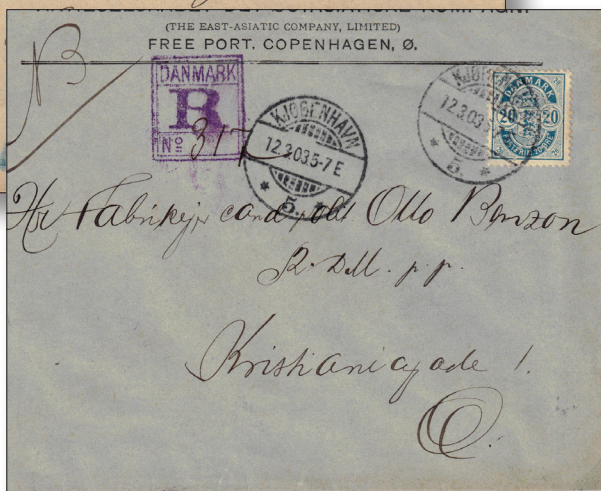 (THE EAST-ASIATIC COMPANY, LIMITED)
FREE PORT. COPENHAGEN, Ø.
DANMARK
R
No 317
KJØBENHAVN
12.3.03.5-7 E
* 5. *
KJØBENHAVN
12.3.03
* 5. *
DANMARK
20 20
Hr Fabrikejer cand. polyt Otto Benzon
R. DM. p. p.
Kristianiagade 1.
Ø.